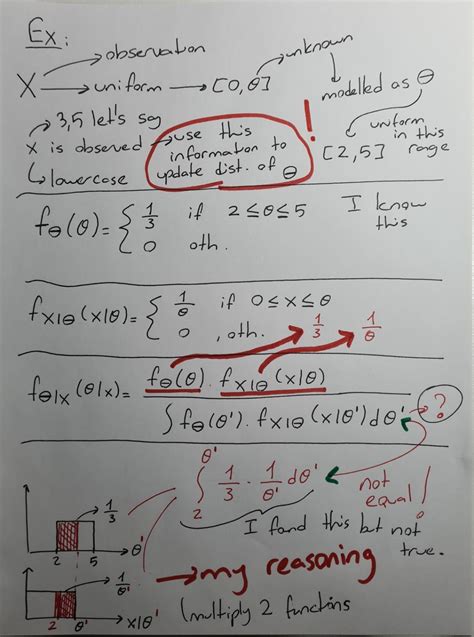 Ex:
observation
unknown
X → uniform → [0, θ]
modelled as Θ
3,5 let's say
x is observed → use this information to update dist. of Θ !
lowercase
uniform in this range
[2,5]
fΘ(θ) = { 1/3 if 2 ≤ θ ≤ 5
0 oth.
I know this
fX|Θ(x|θ) = { 1/θ if 0 ≤ x ≤ θ
0 , oth.
1/3 1/θ
fΘ|X(θ|x) = fΘ(θ) . fX|Θ(x|θ)
∫ fΘ(θ') . fX|Θ(x|θ') dθ' ?
∫ 2 θ' 1/3 . 1/θ' dθ'
not equal!
I fond this but not true.
1/3
2 5 θ'
→ my reasoning
1/θ'
2 θ' x|θ'
(multiply 2 functions